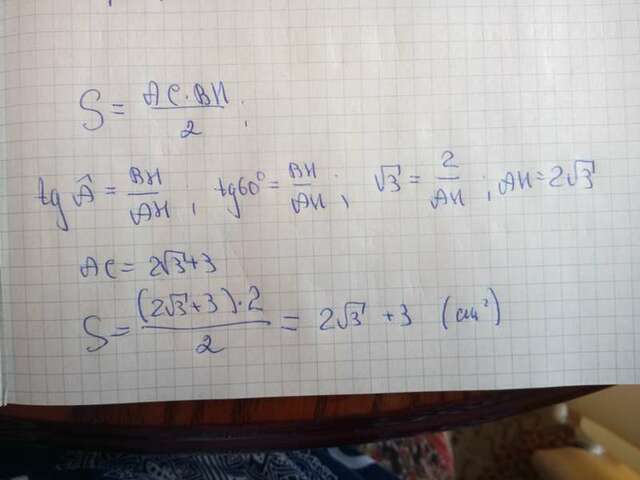 S = AC·BH / 2 ;
tg Â = BH / AH ; tg60° = BH / AH ; √3 = 2 / AH ; AH = 2√3
AC = 2√3+3
S = (2√3+3)·2 / 2 = 2√3 +3 (см²)